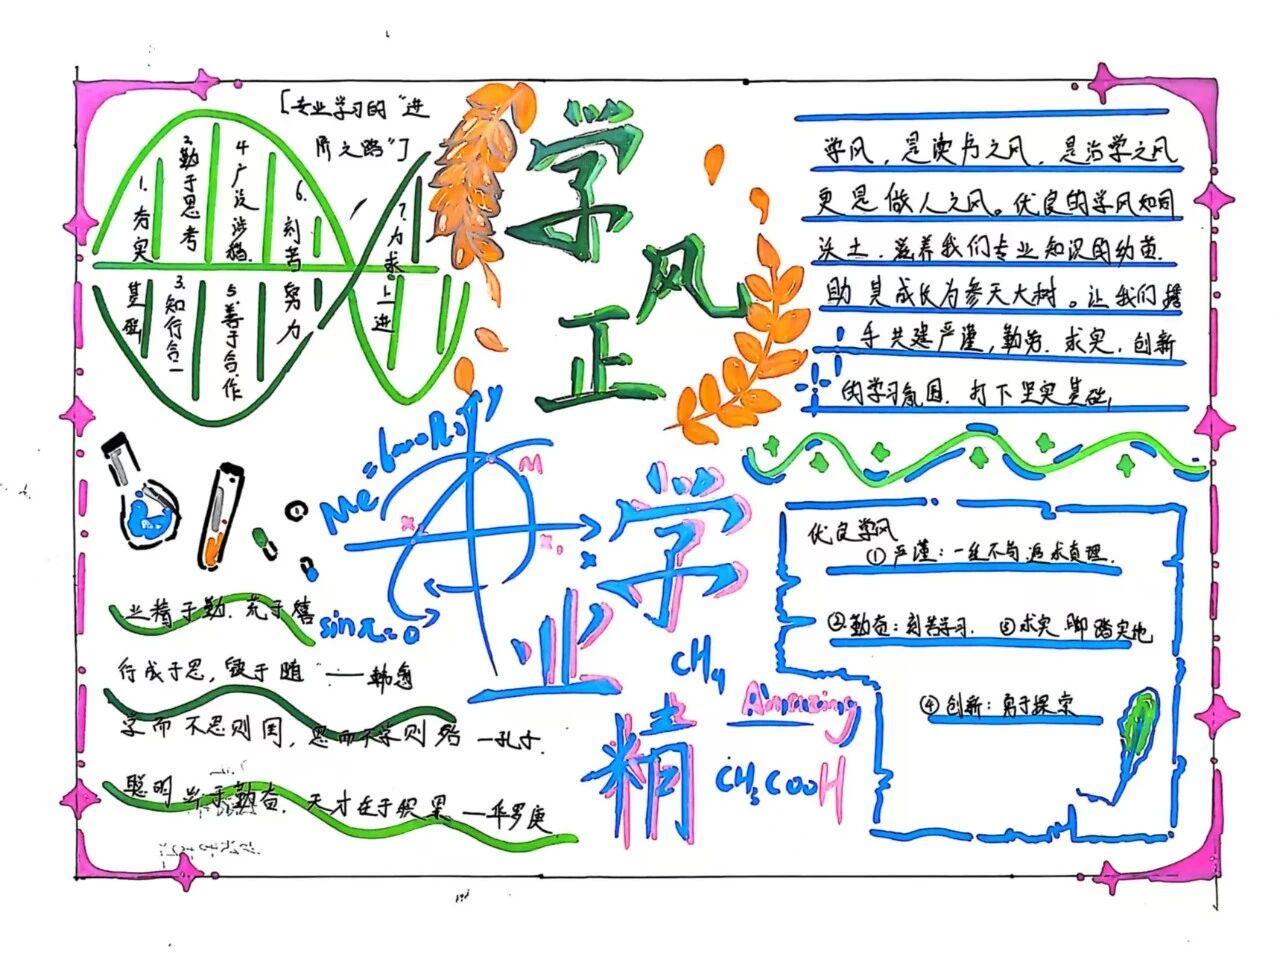 [专业学习的“进
阶之路”]
1.夯实
基础
2.勤于思考
3.知行合一
4.广泛涉猎
5.善于合作
6.刻苦努力
7.力求上进
学
风
正
学风,是读书之风,是治学之风
更是做人之风。优良的学风如同
沃土.滋养我们专业知识的幼苗.
助其成长为参天大树。让我们携
手共建严谨,勤奋.求实.创新
的学习氛围.打下坚实基础,
y
M
x
sinπ=0
学
业
精
CH4
Amazing
CH3COOH
业精于勤.荒于嬉
行成于思,毁于随 ——韩愈
学而不思则罔,思而不学则殆 —孔子.
聪明出于勤奋.天才在于积累 —华罗庚
优良学风
①严谨:一丝不苟追求真理.
②勤奋:刻苦学习. ③求实 脚踏实地
④创新:勇于探索